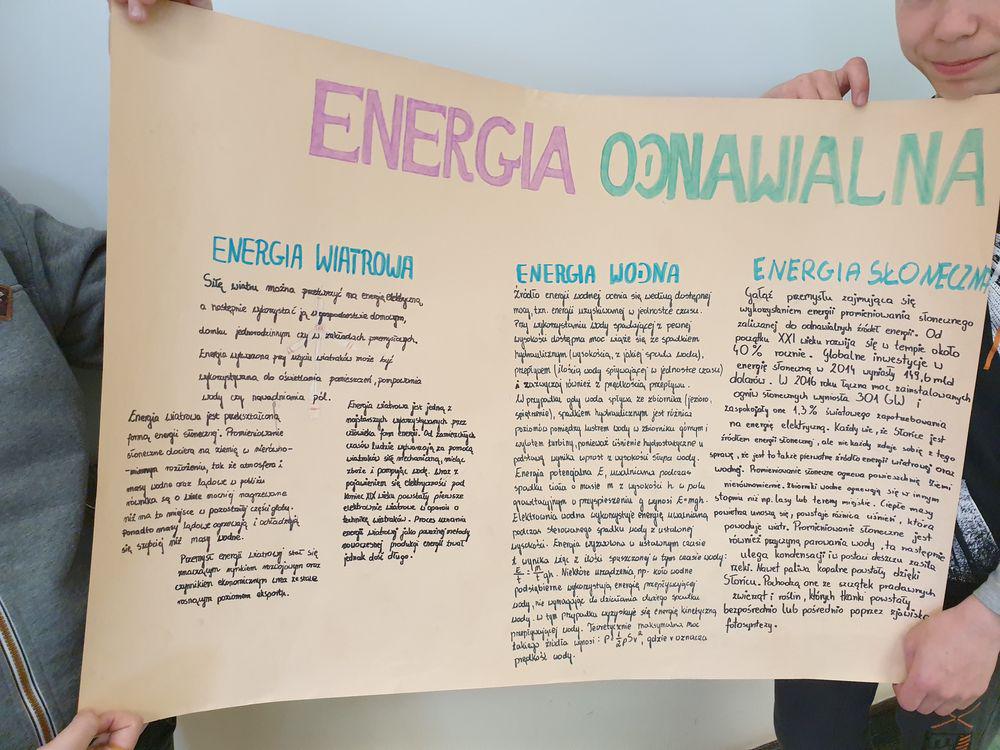 ENERGIA ODNAWIALNA
ENERGIA WIATROWA
Siłę wiatru można przetworzyć na energię elektryczną,
a następnie wykorzystać ją w gospodarstwie domowym,
domku jednorodzinnym czy w zakładach przemysłowych.
Energia wytworzona przy użyciu wiatraków może być
wykorzystywana do oświetlania pomieszczeń, pompowania
wody czy nawadniania pól.
Energia wiatrowa jest przekształconą
formą energii słonecznej. Promieniowanie
słoneczne dociera na ziemię w nierówno-
-miernym rozłożeniu, tak że atmosfera i
masy wodne oraz lądowe w pobliżu
równika są o wiele mocniej nagrzewane
niż ma to miejsce w pozostałej części globu.
Ponadto masy lądowe ogrzewają i ochładzają
się szybciej niż masy wodne.
Przemysł energii wiatrowej stał się
znaczącym rynkiem rozwojowym oraz
czynnikiem ekonomicznym wraz ze stale
rosnącym poziomem eksportu.
Energia wiatrowa jest jedną z
najstarszych wykorzystywanych przez
człowieka form energii. Od zamierzchłych
czasów ludzie wytwarzają za pomocą
wiatraków siłę mechaniczną, mieląc
zboże i pompując wodę. Wraz z
pojawieniem się elektryczności pod
koniec XIX wieku powstały pierwsze
elektrownie wiatrowe w oparciu o
technikę wiatraków. Proces uznania
energii wiatrowej jako poważnej metody
nowoczesnej produkcji energii trwał
jednak dość długo.
ENERGIA WODNA
Źródło energii wodnej ocenia się według dostępnej
mocy, tzn. energii uzyskiwanej w jednostce czasu.
Przy wykorzystaniu wody spadającej z pewnej
wysokości dostępna moc wiąże się ze spadkiem
hydraulicznym (wysokością, z jakiej spada woda),
przepływem (ilością wody spływającej w jednostce czasu)
i zazwyczaj również z prędkością przepływu.
W przypadku, gdy woda spływa ze zbiornika (jezioro,
spiętrzenie), spadkiem hydraulicznym jest różnica
poziomów pomiędzy lustrem wody w zbiorniku górnym i
wylotem turbiny, ponieważ ciśnienie hydrostatyczne u
podstawy wynika wprost z wysokości słupa wody.
Energia potencjalna E, uwalniana podczas
spadku ciała o masie m z wysokości h w polu
grawitacyjnym o przyspieszeniu g wynosi E=mgh.
Elektrownia wodna wykorzystuje energię uwalnianą
podczas sterowanego spadku wody z ustalonej
wysokości. Energia wyzwolona w ustalonym czasie
wynika więc z ilości spuszczonej w tym czasie wody:
E/t = m/t gh. Niektóre urządzenia np. koło wodne
podsiębierne wykorzystują energię przepływającej
wody, nie wymagając do działania dużego spadku
wody. W tym przypadku uzyskuje się energię kinetyczną
przepływającej wody. Teoretycznie maksymalna moc
takiego źródła wynosi: P=1/2ρSv³, gdzie v oznacza
prędkość wody.
ENERGIA SŁONECZNA
Gałąź przemysłu zajmująca się
wykorzystaniem energii promieniowania słonecznego
zaliczanej do odnawialnych źródeł energii. Od
początku XXI wieku rozwija się w tempie około
40% rocznie. Globalne inwestycje w
energię słoneczną w 2014 wyniosły 149,6 mld
dolarów. W 2016 roku łączna moc zainstalowanych
ogniw słonecznych wyniosła 301 GW i
zaspokajały one 1,3% światowego zapotrzebowania
na energię elektryczną. Każdy wie, że Słońce jest
źródłem energii słonecznej, ale nie każdy zdaje sobie z tego
sprawę, że jest to także pierwotne źródło energii wiatrowej oraz
wodnej. Promieniowanie słoneczne ogrzewa powierzchnię Ziemi
nierównomiernie. Zbiorniki wodne ogrzewają się w innym
stopniu niż np. lasy lub tereny miejskie. Ciepłe masy
powietrza unoszą się, powstaje różnica ciśnień, która
powoduje wiatr. Promieniowanie słoneczne jest
również przyczyną parowania wody, ta następnie
ulega kondensacji i w postaci deszczu zasila
rzeki. Nawet paliwa kopalne powstały dzięki
Słońcu. Pochodzą one ze szczątek pradawnych
zwierząt i roślin, których tkanki powstały
bezpośrednio lub pośrednio poprzez zjawisko
fotosyntezy.